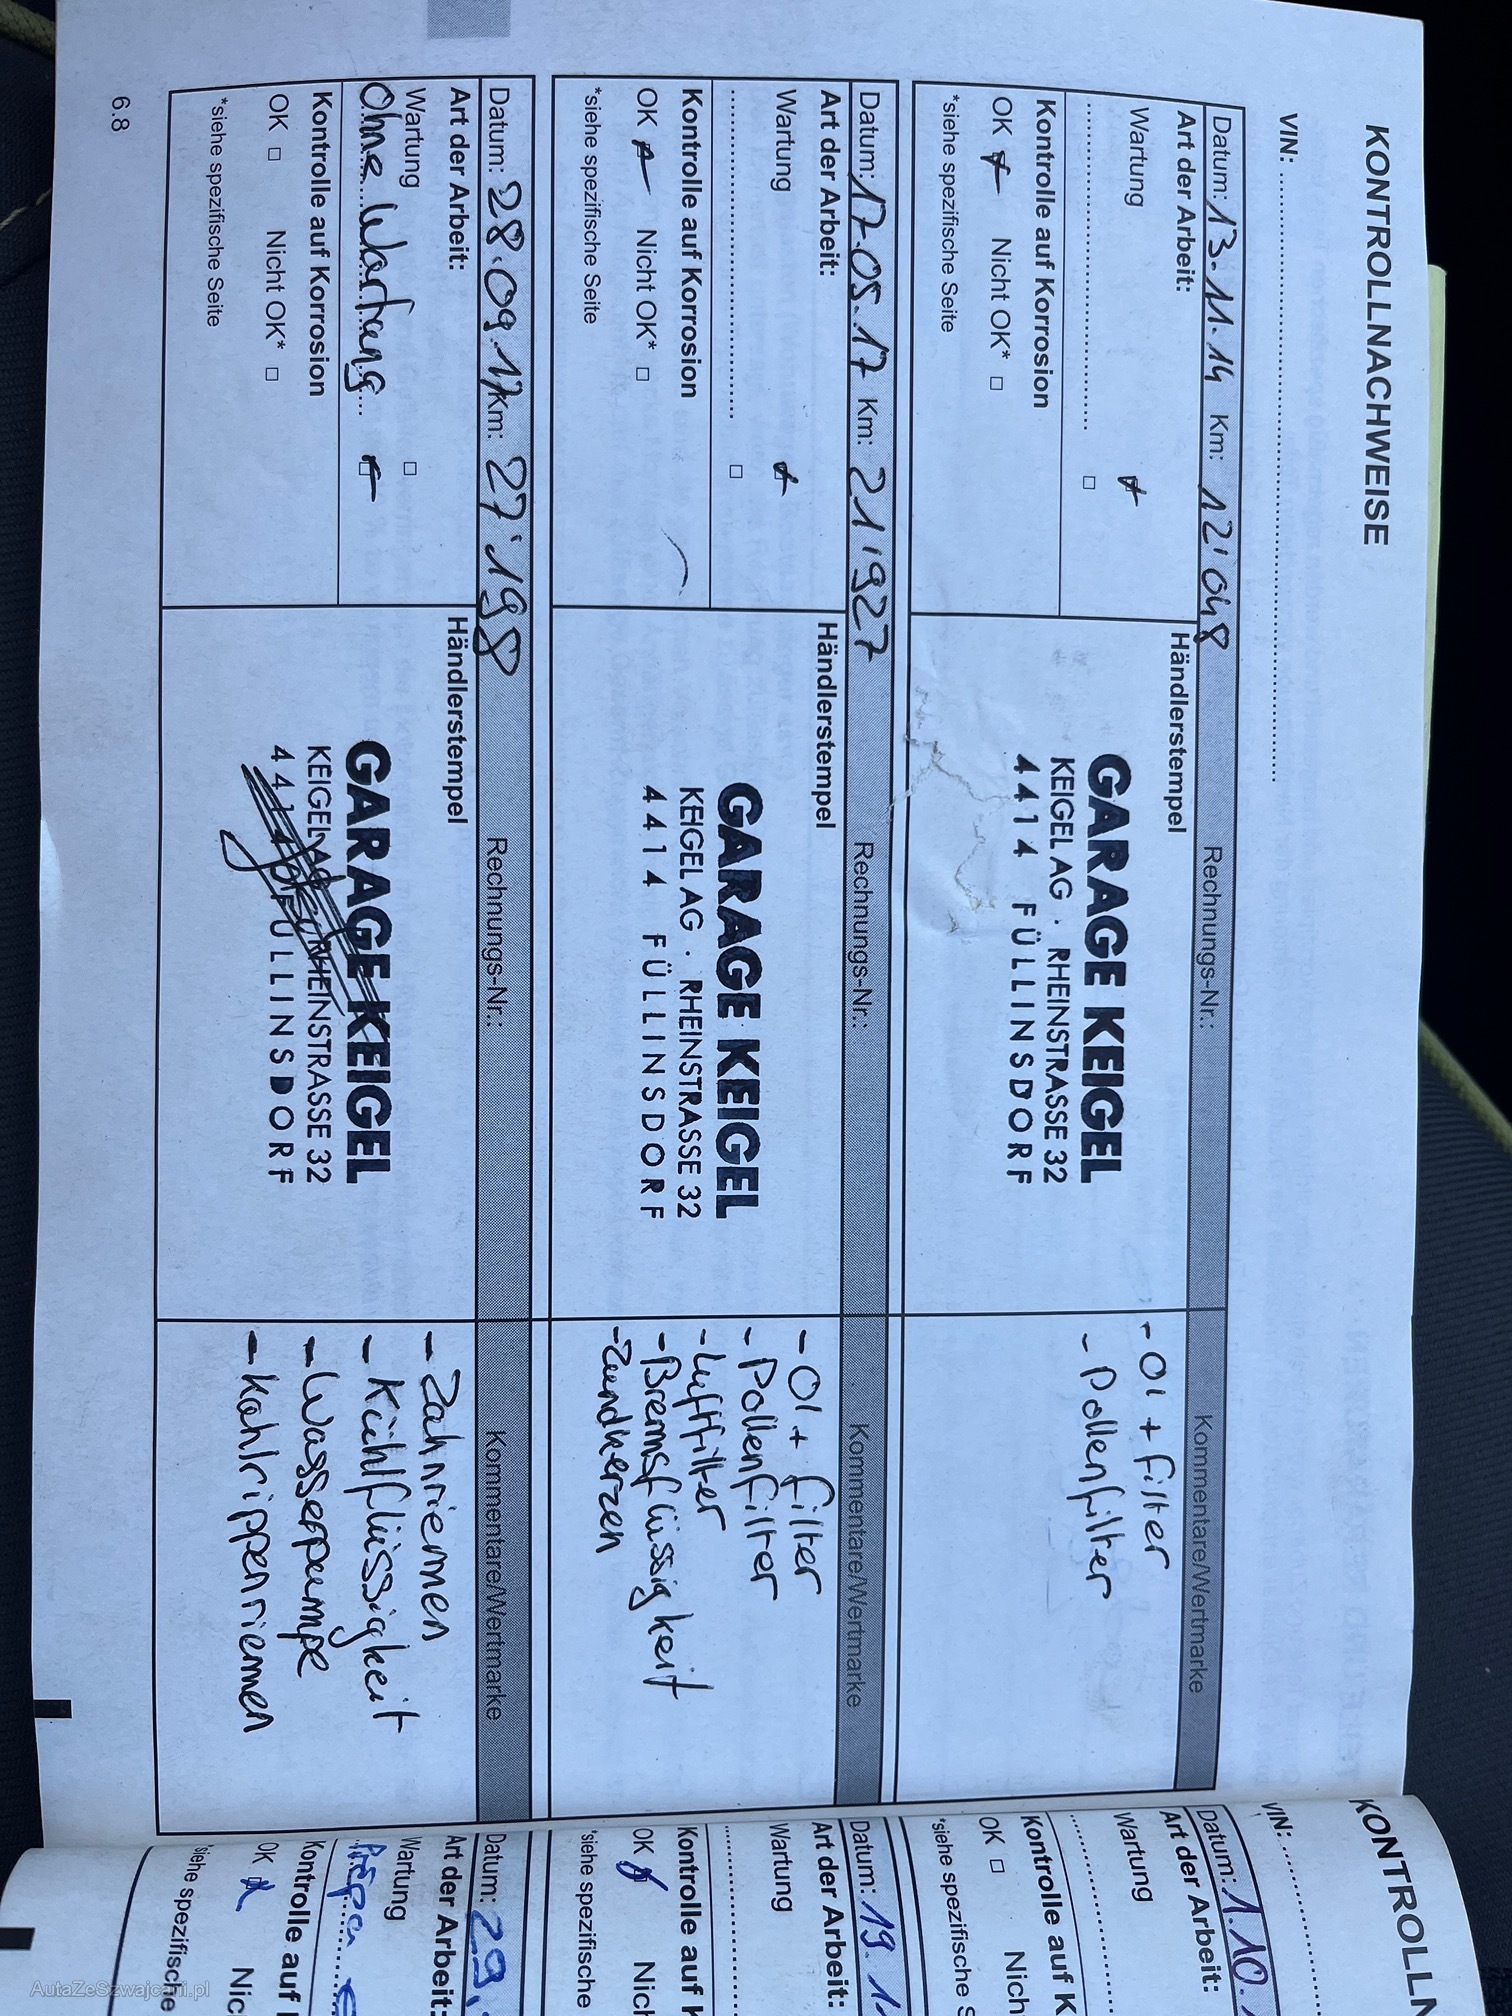 KONTROLLNACHWEISE
VIN:
Datum: 13.11.14 Km: 12'048 Rechnungs-Nr.: Kommentare/Wertmarke
Art der Arbeit:
Wartung
OK Nicht OK*
Kontrolle auf Korrosion
*siehe spezifische Seite
Händlerstempel
GARAGE KEIGEL
KEIGEL AG · RHEINSTRASSE 32
4414 FÜLLINSDORF
- Öl + Filter
- Pollenfilter
Datum: 17.05.17 Km: 21'927 Rechnungs-Nr.: Kommentare/Wertmarke
Art der Arbeit:
Wartung
Kontrolle auf Korrosion
OK Nicht OK*
*siehe spezifische Seite
Händlerstempel
GARAGE KEIGEL
KEIGEL AG · RHEINSTRASSE 32
4414 FÜLLINSDORF
- Öl + Filter
- Pollenfilter
- Luftfilter
- Bremsflüssigkeit
- Zündkerzen
Datum: 28.09.17 Km: 27'198 Rechnungs-Nr.: Kommentare/Wertmarke
Art der Arbeit:
Wartung
Ohne Wartung
Kontrolle auf Korrosion
OK Nicht OK*
*siehe spezifische Seite
Händlerstempel
GARAGE KEIGEL
KEIGEL AG RHEINSTRASSE 32
4414 FÜLLINSDORF
- Zahnriemen
- Kühlflüssigkeit
- Wasserpumpe
- Kahlrippenriemen
6.8
KONTROLLN
VIN:
Datum: 1.10.
Art der Arbeit:
Wartung
Kontrolle auf K
OK Nich
*siehe spezifische S
Datum: 19.
Art der Arbeit:
Wartung
Kontrolle auf K
OK Nich
*siehe spezifische
Datum: 29.
Art der Arbeit:
Wartung
Kontrolle auf
OK Nic
*siehe spezifische
AutaZeSzwajcarii.pl